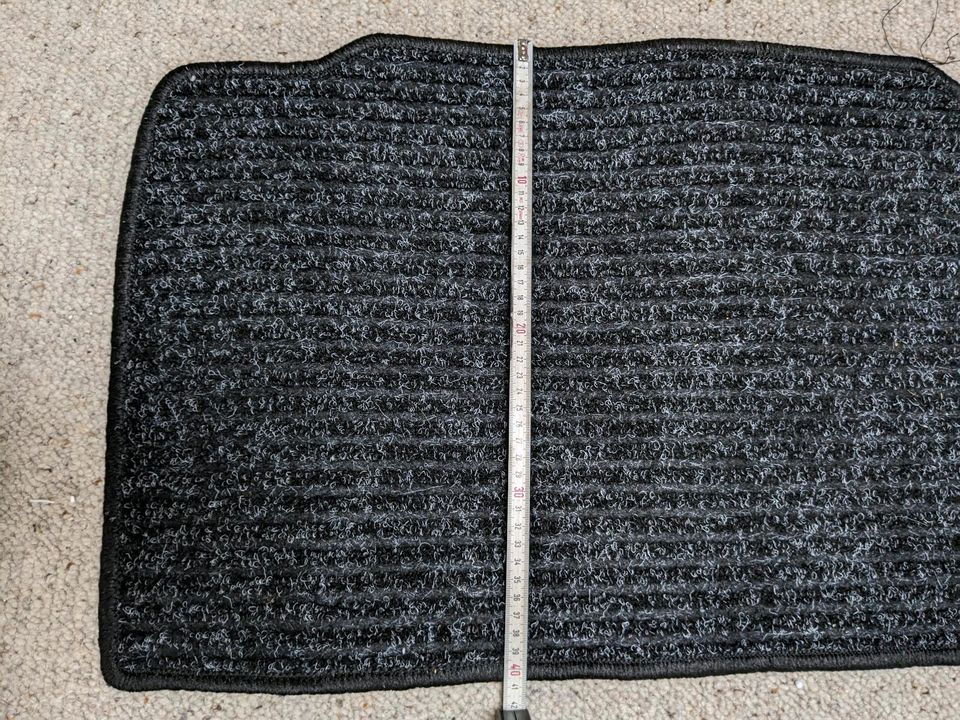 2
3
5
6
7
8
9
10
11
12
13
14
15
16
17
18
19
20
21
22
23
24
25
26
27
28
29
30
31
32
33
34
35
36
37
38
39
40
41
42